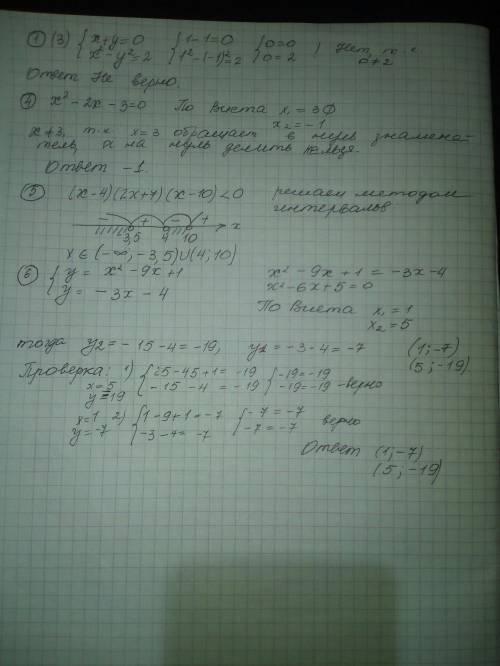 ① (3) { x+y=0 { 1-1=0 { 0=0 ) Нет, т. к.
x²-y²=2 1²-(-1)²=2 0=2 0≠2
Ответ Не верно.
④ x²-2x-3=0 По Виета x₁=3
x₂=-1
x≠3, т.к. x=3 обращает в нуль знамена-
тель, а на нуль делить нельзя.
Ответ -1.
⑤ (x-4)(2x+7)(x-10)<0 решаем методом
интервалов
- + - + x
3,5 4 10
x∈(-∞; -3,5)∪(4; 10)
⑥ { y = x²-9x+1 x²-9x+1=-3x-4
y = -3x-4 x²-6x+5=0
По Виета x₁=1
x₂=5
тогда y₂=-15-4=-19, y₁=-3-4=-7 (1; -7)
(5; -19)
Проверка: 1) { 25-45+1=-19 { -19=-19
x=5 -15-4=-19 -19=-19 -верно
y=-19
x=1 2) { 1-9+1=-7 { -7=-7 верно
y=-7 -3-4=-7 -7=-7
Ответ (1; -7)
(5; -19)